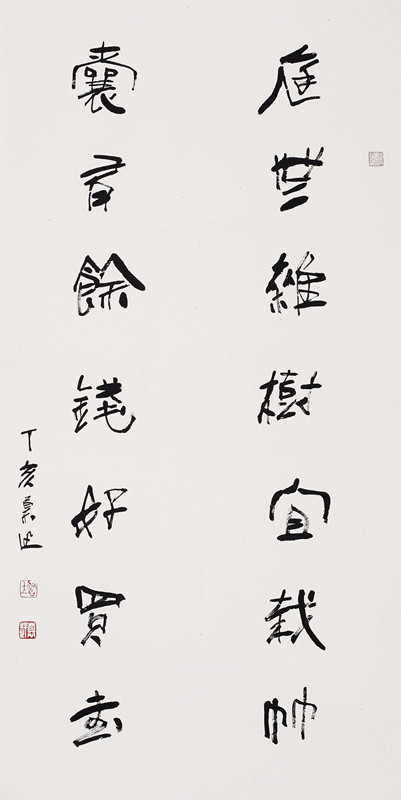 庭無雜樹宜栽竹
囊有餘錢好買書
丁亥